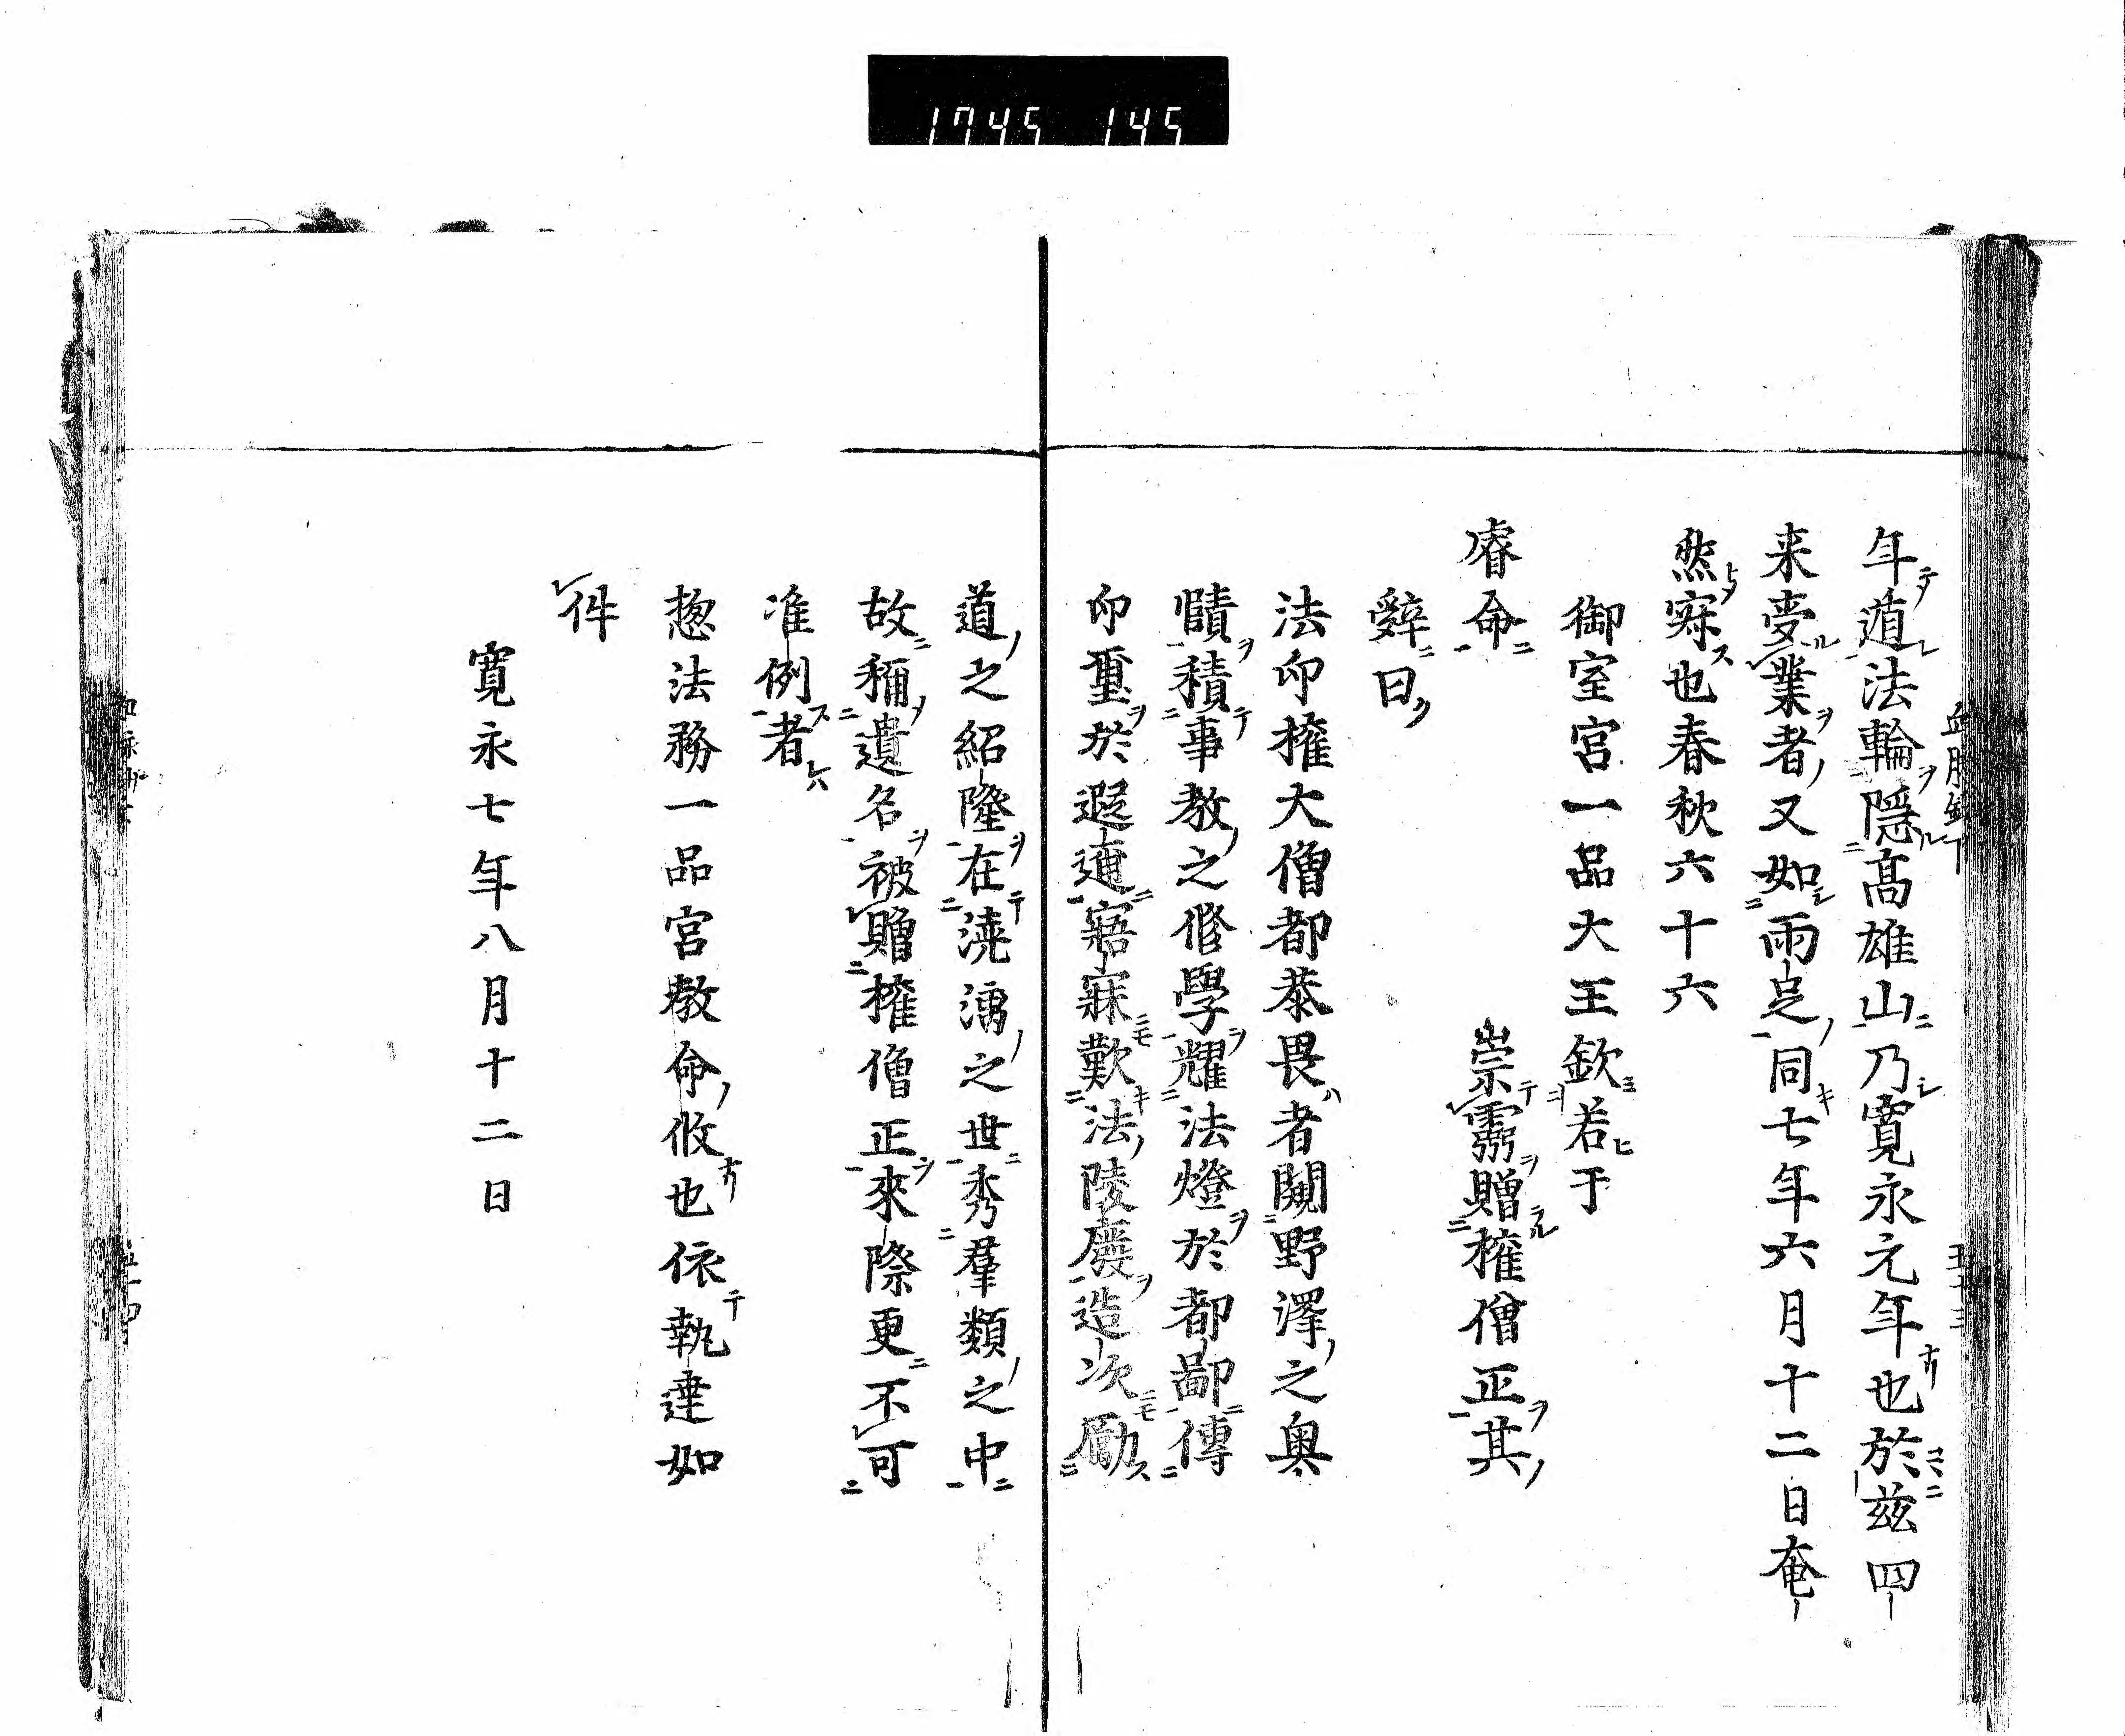 1745 145
年遁法輪隱髙雄山乃寛永元年也於茲四
来受業者又如雨足同七年六月十二日奄
然寂也春秋六十六
御室宮一品大王欽若于
睿命 崇靈贈権僧正其
辭曰
法印権大僧都恭畏者闚野澤之奥
賾積事教之修學耀法燈於都鄙傳
印璽於遐邇寤寐歎法陵廢造次勵
道之紹隆在澆漓之世秀羣類之中
故稱遺名被贈権僧正來際更不可
准例者
惣法務一品宮教命攸也依執達如
件
寛永七年八月十二日